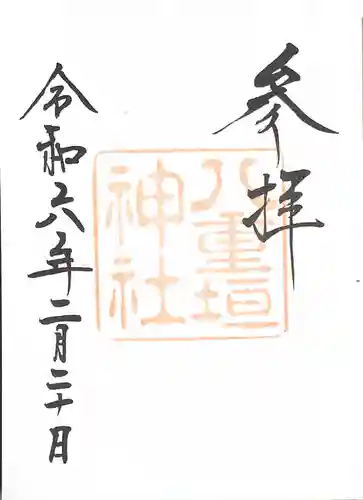 参拝
八重垣
神社
令和六年二月二十日